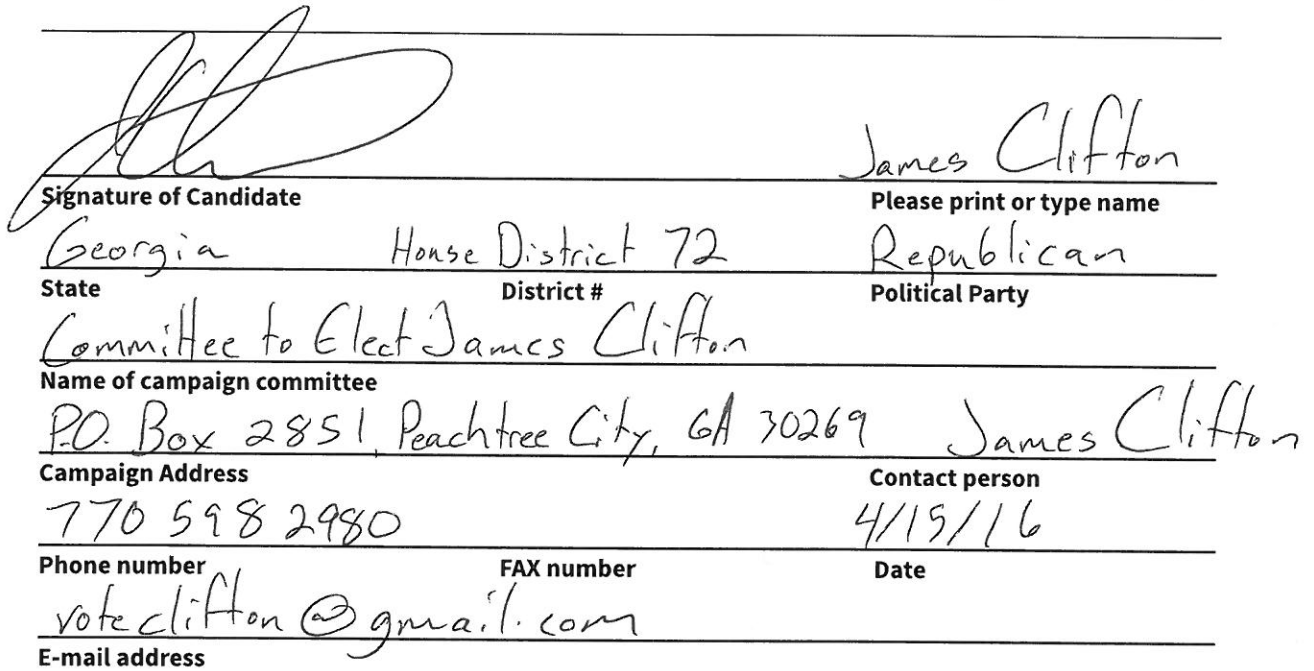 James Clifton
Signature of Candidate Please print or type name
Georgia House District 72 Republican
State District # Political Party
Committee to Elect James Clifton
Name of campaign committee
P.O. Box 2851, Peachtree City, GA 30269 James Clifton
Campaign Address Contact person
770 598 2980 4/15/16
Phone number FAX number Date
voteclifton@gmail.com
E-mail address